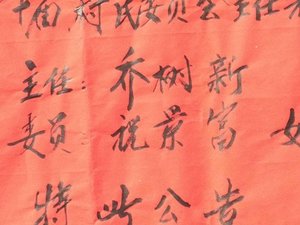 十届村民委员会主任
主任：乔树新
委员 祝景富 女
特此公告